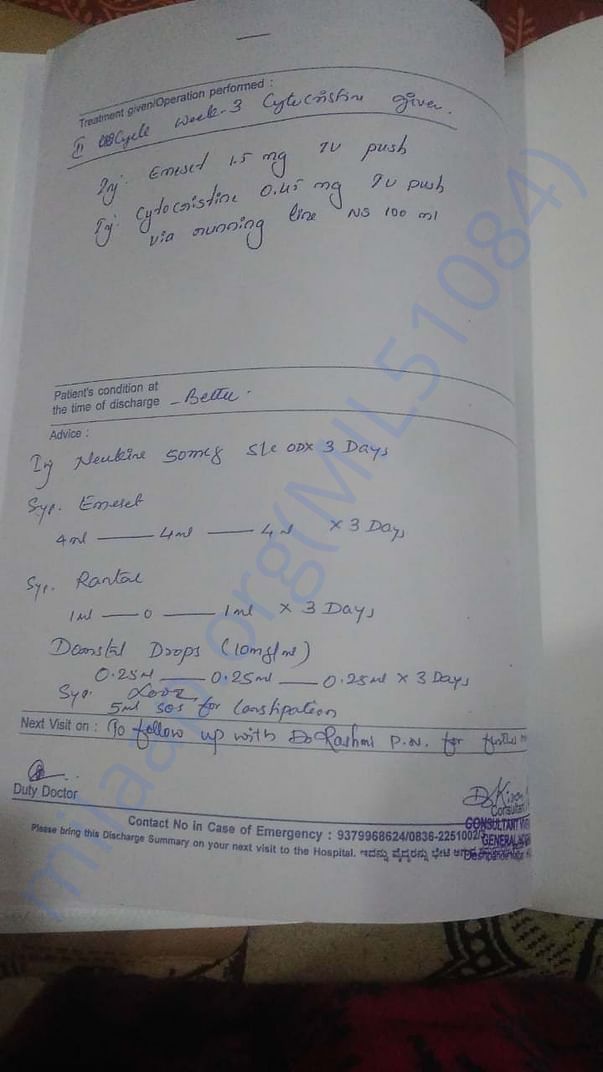 Treatment given/Operation performed :
II Cycle Week-3 Cytocristine given.
Inj. Emeset 1.5 mg IV push
Inj. Cytocristine 0.45 mg IV push
via running line NS 100 ml
Patient's condition at
the time of discharge - Better.
Advice :
Inj Neukine 50mcg S/c OD x 3 Days
Syp. Emeset
4 ml —— 4 ml —— 4 ml x 3 Days
Syp. Rantac
1ml —— 0 —— 1ml x 3 Days
Domstal Drops (10mg/ml)
0.25ml —— 0.25ml —— 0.25ml x 3 Days
Syp. Looz
5ml SOS for Constipation
Next Visit on : To follow up with Dr Rashmi P.N. for further
Duty Doctor
Consultant
CONSULTANT
GENERAL
Deshpande Nagar
Contact No in Case of Emergency : 9379968624/0836-2251002/3
Please bring this Discharge Summary on your next visit to the Hospital. ಇದನ್ನು ವೈದ್ಯರನ್ನು ಭೇಟಿ
milaap.org(MIL51084)